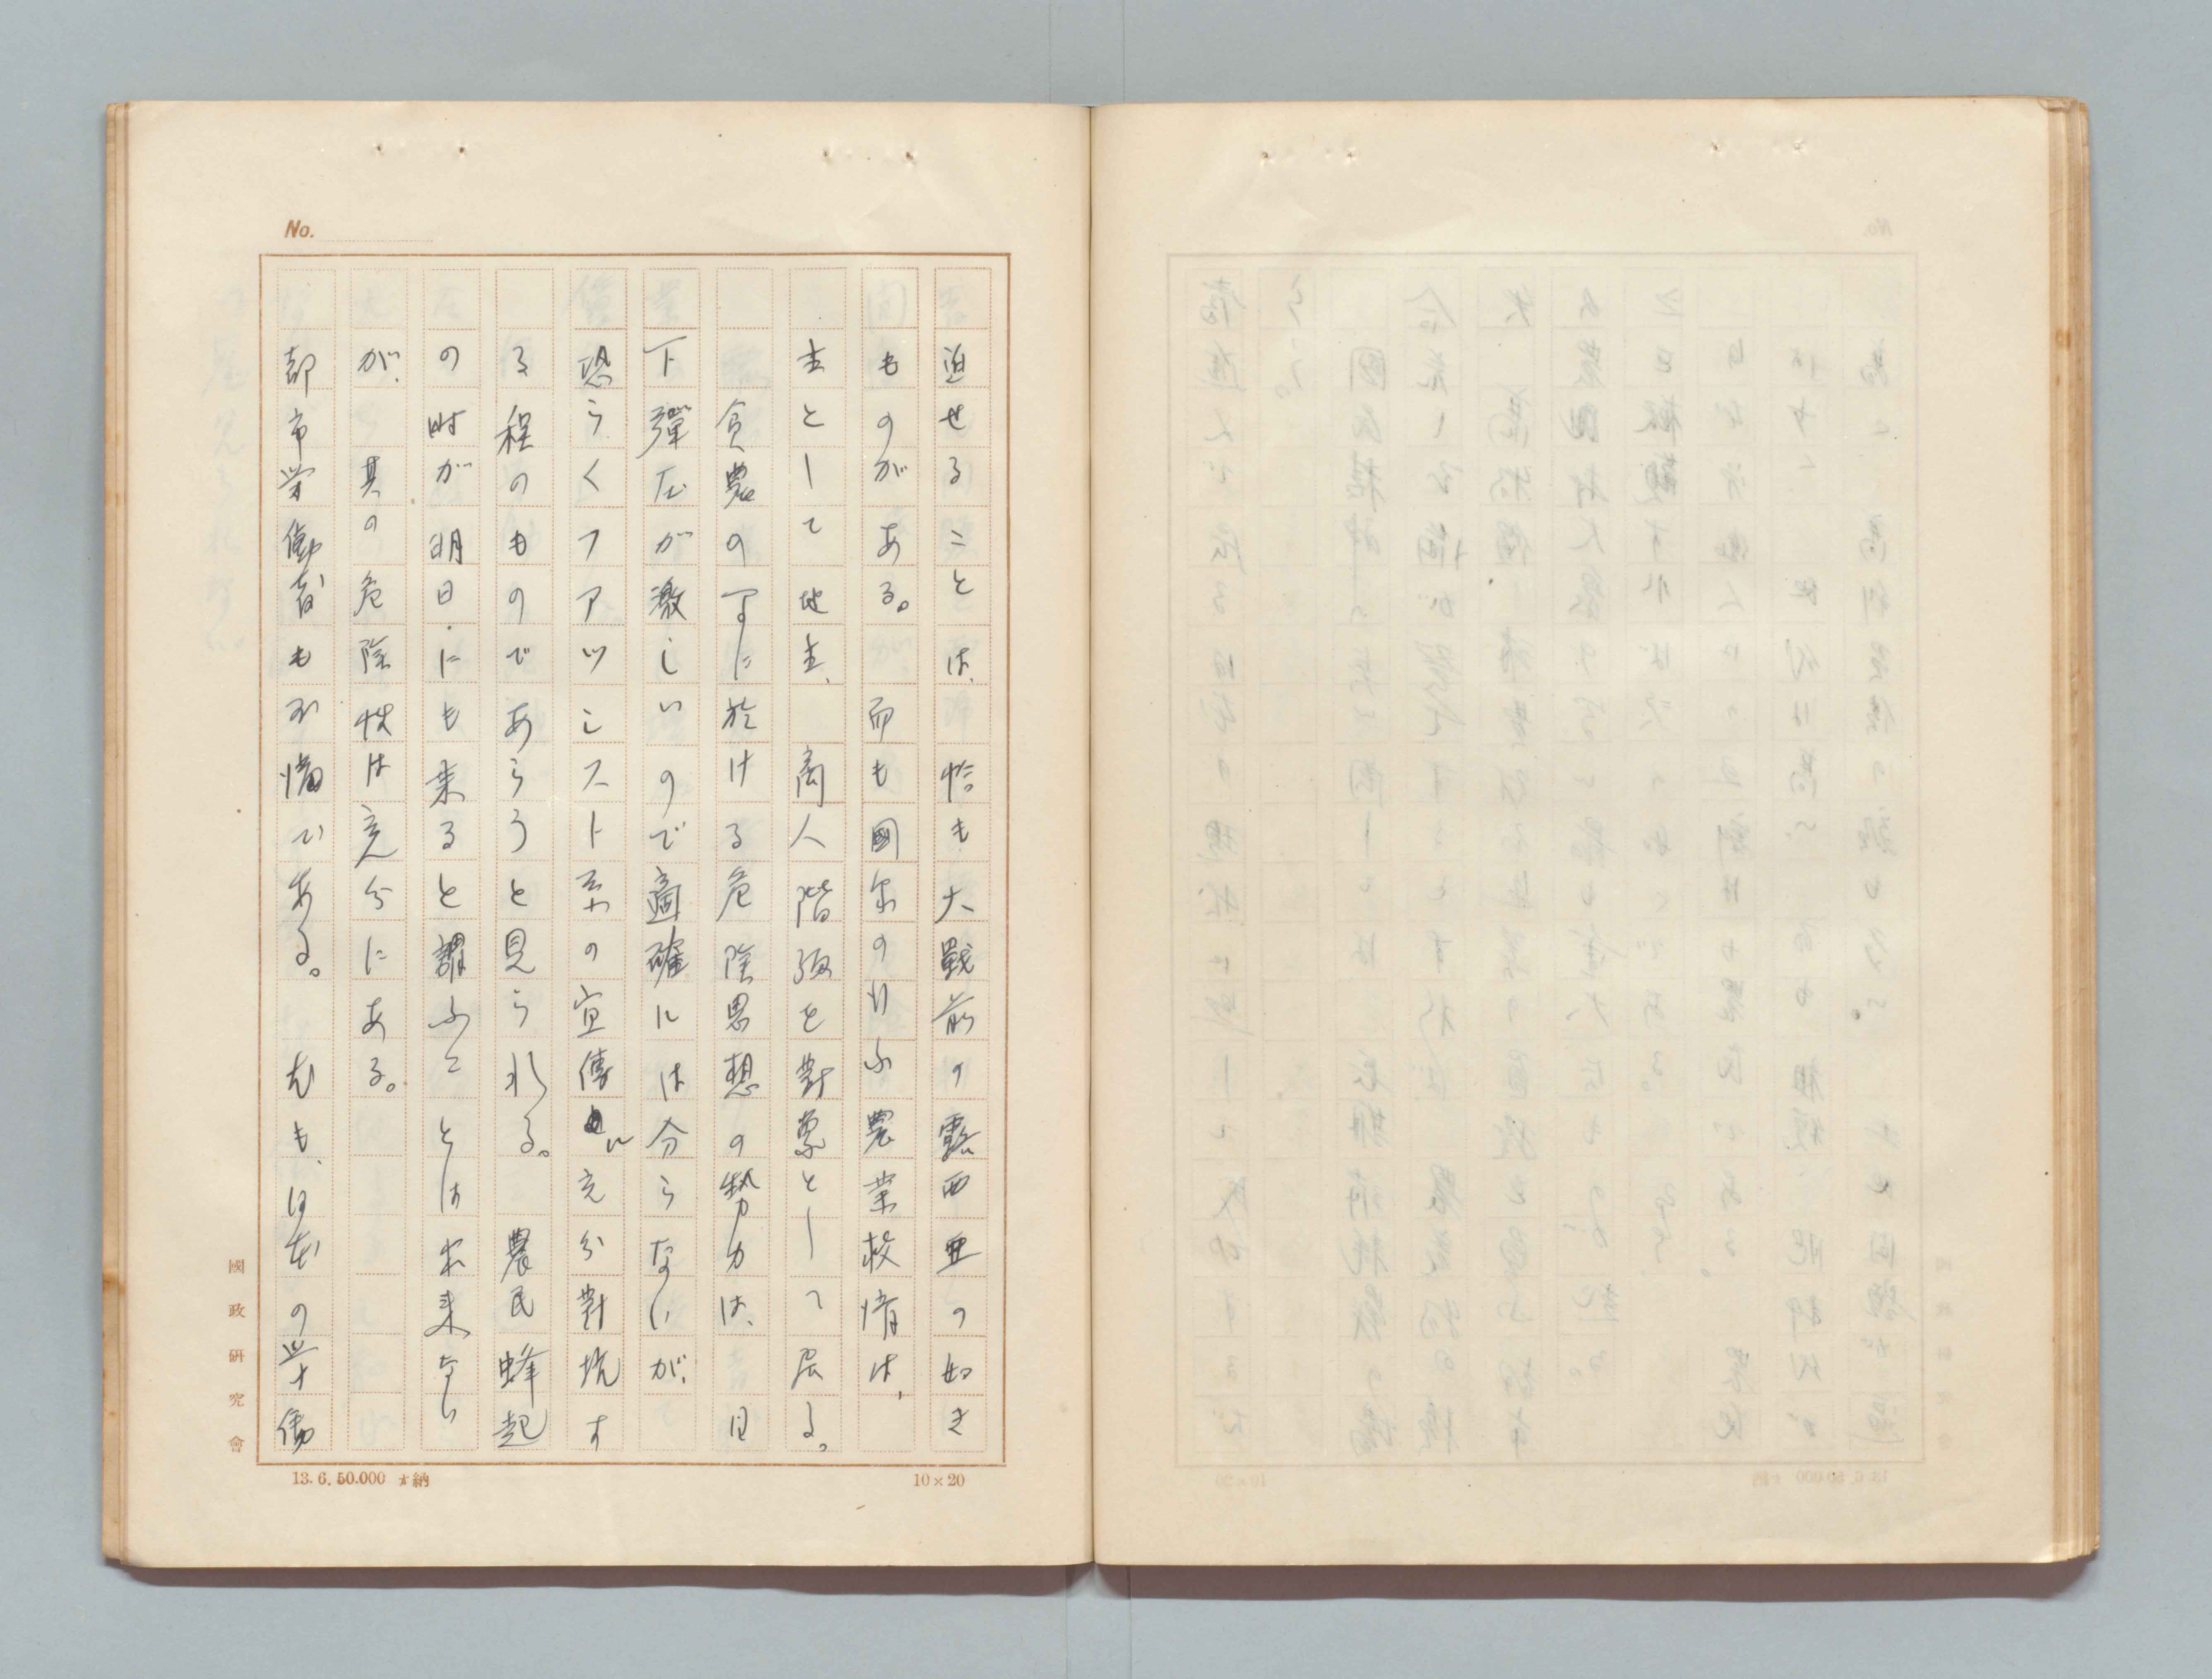 No.
迫せることは、恰も大戰前の露西亜の如き
ものがある。而も國家の行ふ農業救済は、
主として地主、商人階級を對象として居る。
貧農の下に於ける危険思想の勢力は、目
下彈圧が激しいので適確には分らないが、
恐らくファッシスト系の宣傳に充分對抗す
る程のものであらうと見られる。農民蜂起
の時が明日にも来ると謂ふことは出来ない
が、其の危険性は充分にある。
都市労働者も同様である。尤も、日本の労働
國政研究會
13.6.50.000 納
10×20